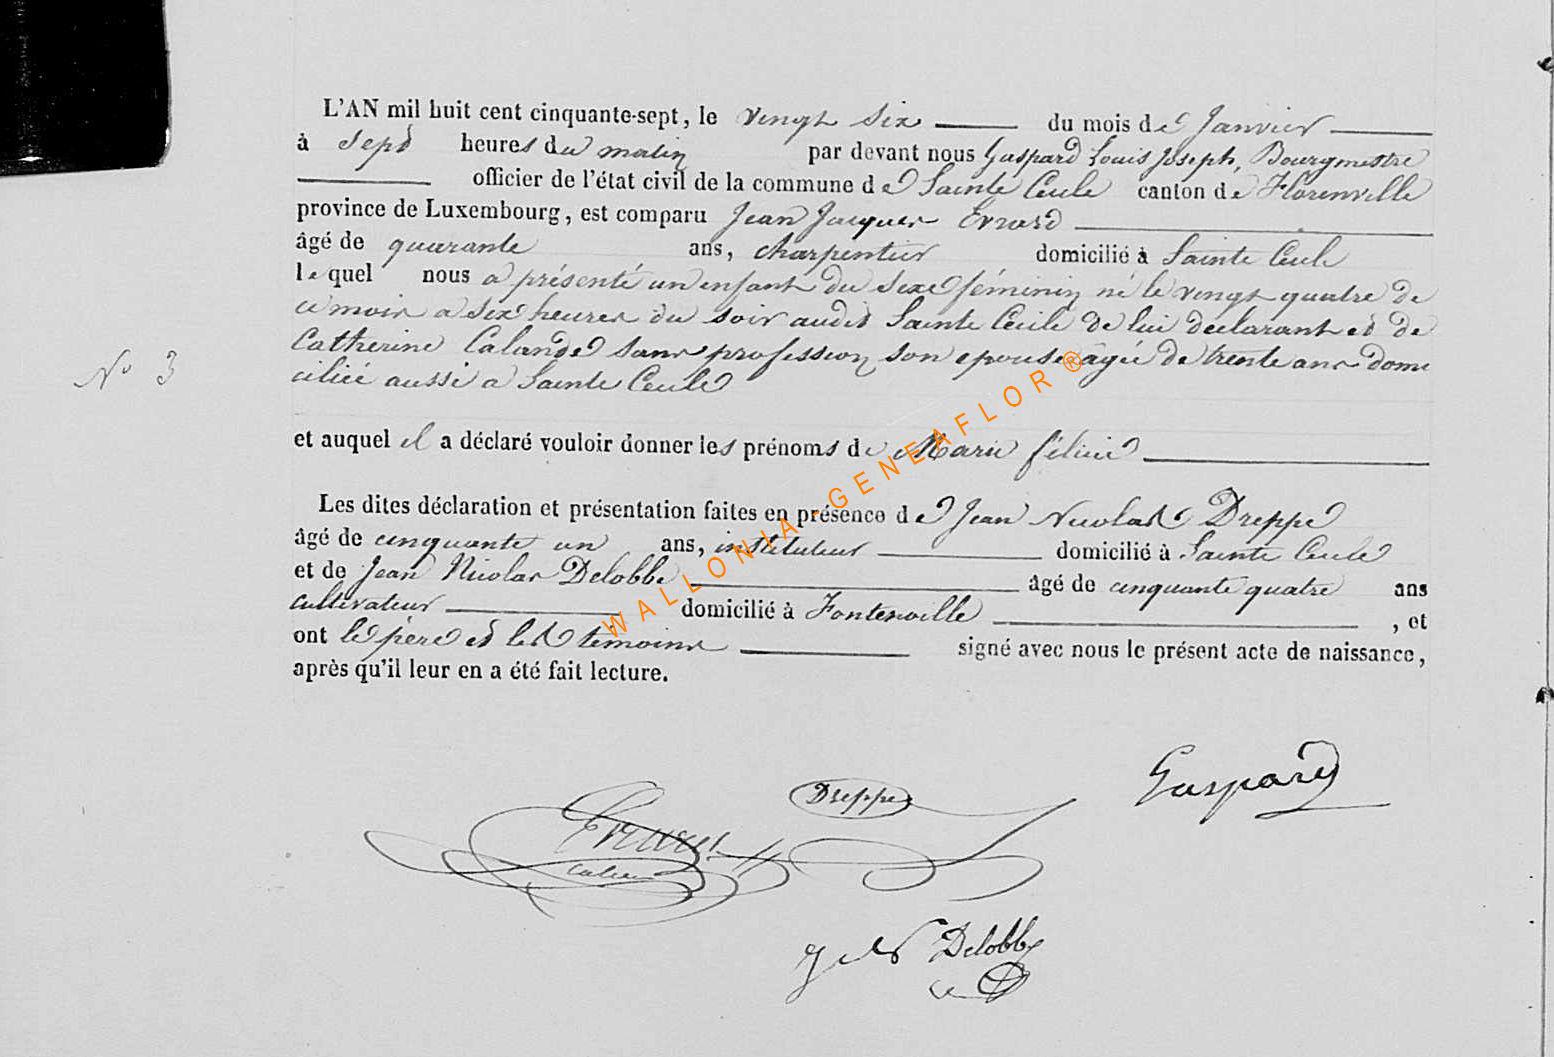 L'AN mil huit cent cinquante-sept, le vingt six du mois de Janvier
à sept heures du matin par devant nous Gaspard Louis Joseph, Bourgmestre
officier de l'état civil de la commune de Sainte Cecile canton de Florenville
province de Luxembourg, est comparu Jean Jacques Evrard
âgé de quarante ans, charpentier domicilié à Sainte Cecile
lequel nous a présenté un enfant du sexe féminin né le vingt quatre de
ce mois a six heures du soir audit Sainte Cecile de lui declarant et de
Catherine Calande sans profession son epouse âgée de trente ans domi
ciliée aussi a Sainte Cecile
N° 3
et auquel il a déclaré vouloir donner les prénoms de Marie félicie
Les dites déclaration et présentation faites en présence de Jean Nicolas Dreppe
âgé de cinquante un ans, instituteur domicilié à Sainte Cecile
et de Jean Nicolas Delobbe âgé de cinquante quatre ans
cultivateur domicilié à Fontenoille , et
ont le père et les temoins signé avec nous le présent acte de naissance,
après qu'il leur en a été fait lecture.
WALLONIA-GENEAFLOR®
Gaspard
Dreppe
Evrard
Delobbe